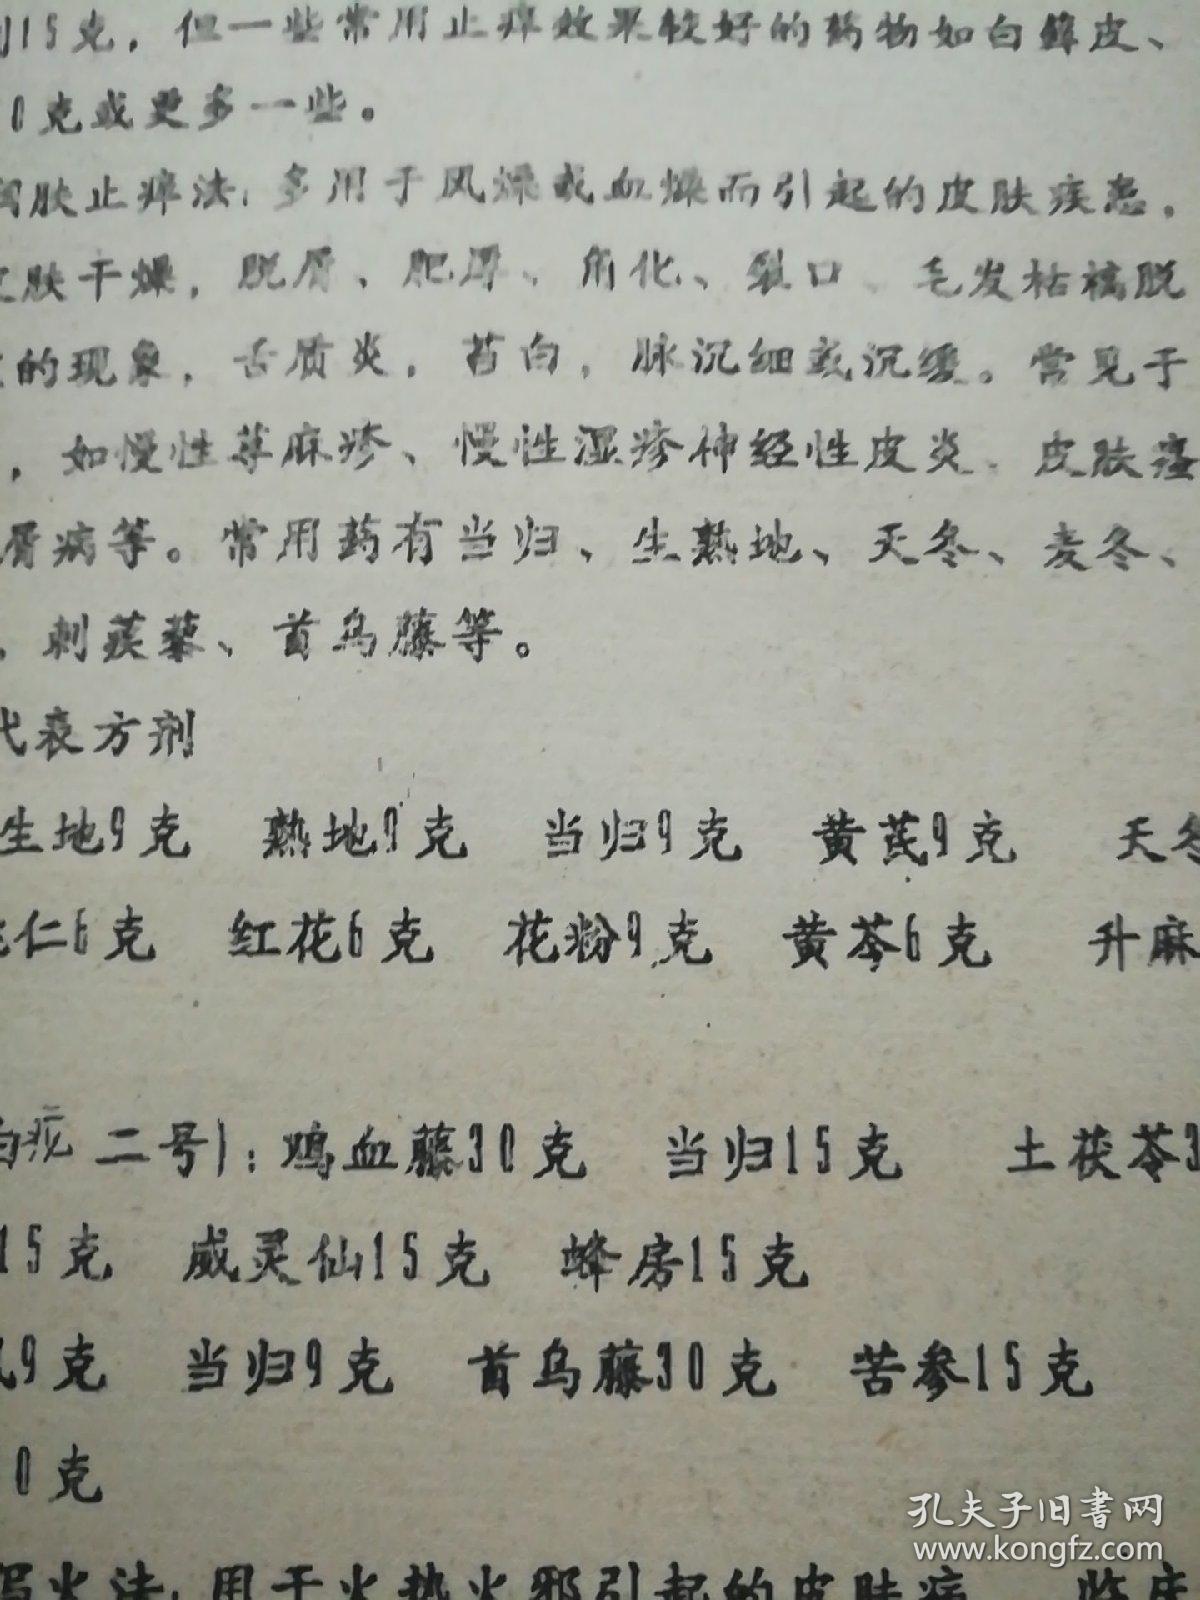 15克，但一些常用止痒效果较好的药物如白鲜皮、
0克或更多一些。
肤止痒法：多用于风燥或血燥而引起的皮肤疾患，
肤干燥，脱屑、肥厚、角化、裂口、毛发枯槁脱
的现象，舌质炎，苔白，脉沉细或沉缓。常见于
，如慢性荨麻疹、慢性湿疹神经性皮炎、皮肤瘙
屑病等。常用药有当归、生熟地、天冬、麦冬、
，刺蒺藜、首乌藤等。
代表方剂
生地9克 熟地9克 当归9克 黄芪9克 天冬
仁6克 红花6克 花粉9克 黄芩6克 升麻
白疕二号)：鸡血藤30克 当归15克 土茯苓3
15克 威灵仙15克 蜂房15克
9克 当归9克 首乌藤30克 苦参15克
0克
泻火法：用于火热火邪引起的皮肤病 临床
孔夫子旧书网
www.kongfz.com